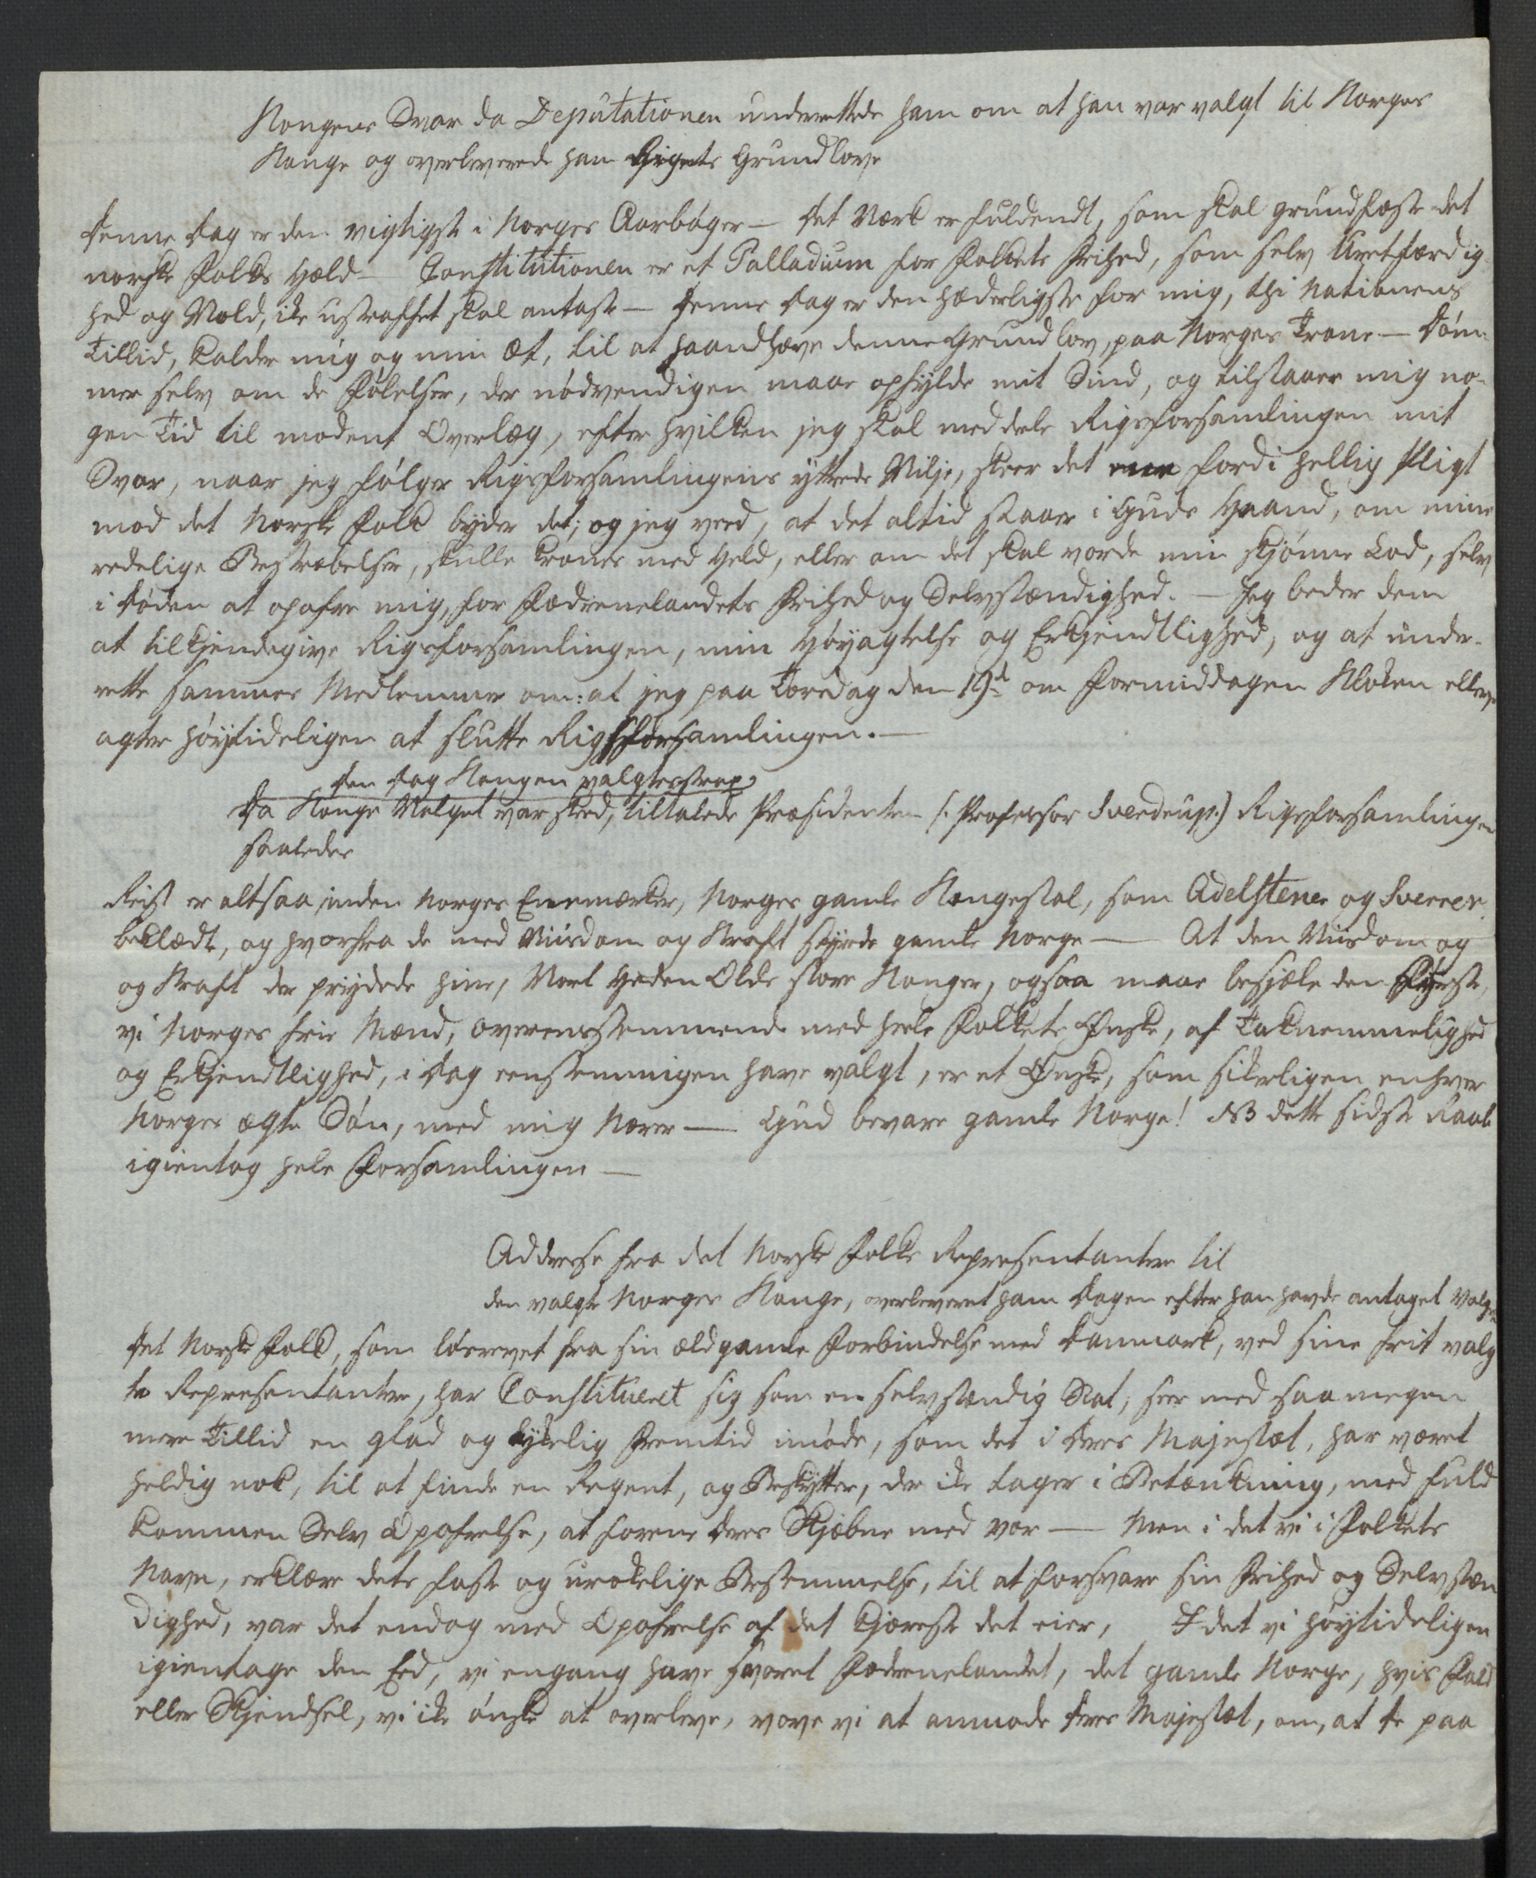 Kongens Svar da Deputationen underrettede ham om at han var valgt til Norges
Konge og overleverede ham Rigets Grundlove
Denne Dag er den vigtigste i Norges Aarbøger — Det Værk er fuldendt, som skal grundfæste det
norske Folks Hæld — Constitutionen er et Palladium for Folkets Frihed, som selv Uretfærdig-
hed og Vold, ike ustraffet skal antaste — Denne Dag er den hæderligste for mig, thi Nationens
Tillid, kalder mig og min Æt, til at haandhæve denne Grundlov, paa Norges Trone — Døm-
mer selv om de Følelser, der nødvendigen maae opfylde mit Sind, og tilstaaer mig no-
gen Tid til modent Overlæg, efter hvilken jeg skal meddele Rigsforsamlingen mit
Svar, naar jeg følger Rigsforsamlingens yttrede Vilje, skeer det fordi hellig Pligt
mod det Norske Folk byder det; og jeg veed, at det altid staaer i Guds Haand, om mine
redelige Bestræbelser, skulle krones med Held, eller om det skal vorde min skjønne Lod, selv
i Døden at opofre mig, for Fædrenelandets Frihed og Selvstændighed. — Jeg beder dem
at tilkjendegive Rigsforsamlingen, min Høyagtelse og Erkjendtlighed, og at under-
rette sammes Medlemmer om: at jeg paa Torsdag den 19d om Formiddagen Kloken elleve
agter høytideligen at slutte Rigsforsamlingen. —
den Dag Kongen valgtes
Da Konge Valget var skeed, tiltalede Præsidenten (: Professor Sverdrup:) Rigsforsamlingen
saaledes
Reist er altsaa inden Norges Enemærker, Norges gamle Kongestol, som Adelstener og Sverrer,
beklædte, og hvorfra de med Viisdom og Kraft styrede gamle Norge — At den Viisdom og
og Kraft der prydede hine, Vort Heden Olds store Konger, ogsaa maae besjæle den Fyrste,
vi Norges frie Mænd, overensstemmende med heele Folkets Ønske, af Taknemmelighed
og Erkjendtlighed, i Dag eenstemmigen have valgt, er et Ønske, som sikerligen enhver
Norges ægte Søn, med mig Nærer — Gud bevare gamle Norge! NB dette sidste Raab
igientog hele Forsamlingen —
Addresse fra det Norske Folks Representantere til
den valgte Norges Konge, overleveret ham Dagen efter han havde antaget Valget
Det Norske Folk, som løsrevet fra sin ældgamle Forbindelse med Danmark, ved sine frit valg
te Representantere, har Constitueret sig som en selvstændig Stat, seer med saa megen
mere Tillid en glad og lykelig Fremtid imøde, som det i Deres Majestæt, har været
heldig nok, til at finde en Regent, og Beskytter, der ike tager i Betænkning, med fuld
kommen Selv Opofrelse, at forene Deres Skjæbne med vor — Men i det vi i Folkets
Navn, erklære dets faste og urokelige Bestemmelse, til at forsvare sin Frihed og Selvstæn
dighed, var det endog med Opofrelse af det kjæreste det eier, I det vi høytideligen
igientage den Eed, vi engang have svoret Fædrenelandet, det gamle Norge, hvis Fald
eller Skjendsel, vi ike ønske at overleve, vove vi at anmode Deres Majestæt, om, at De paa